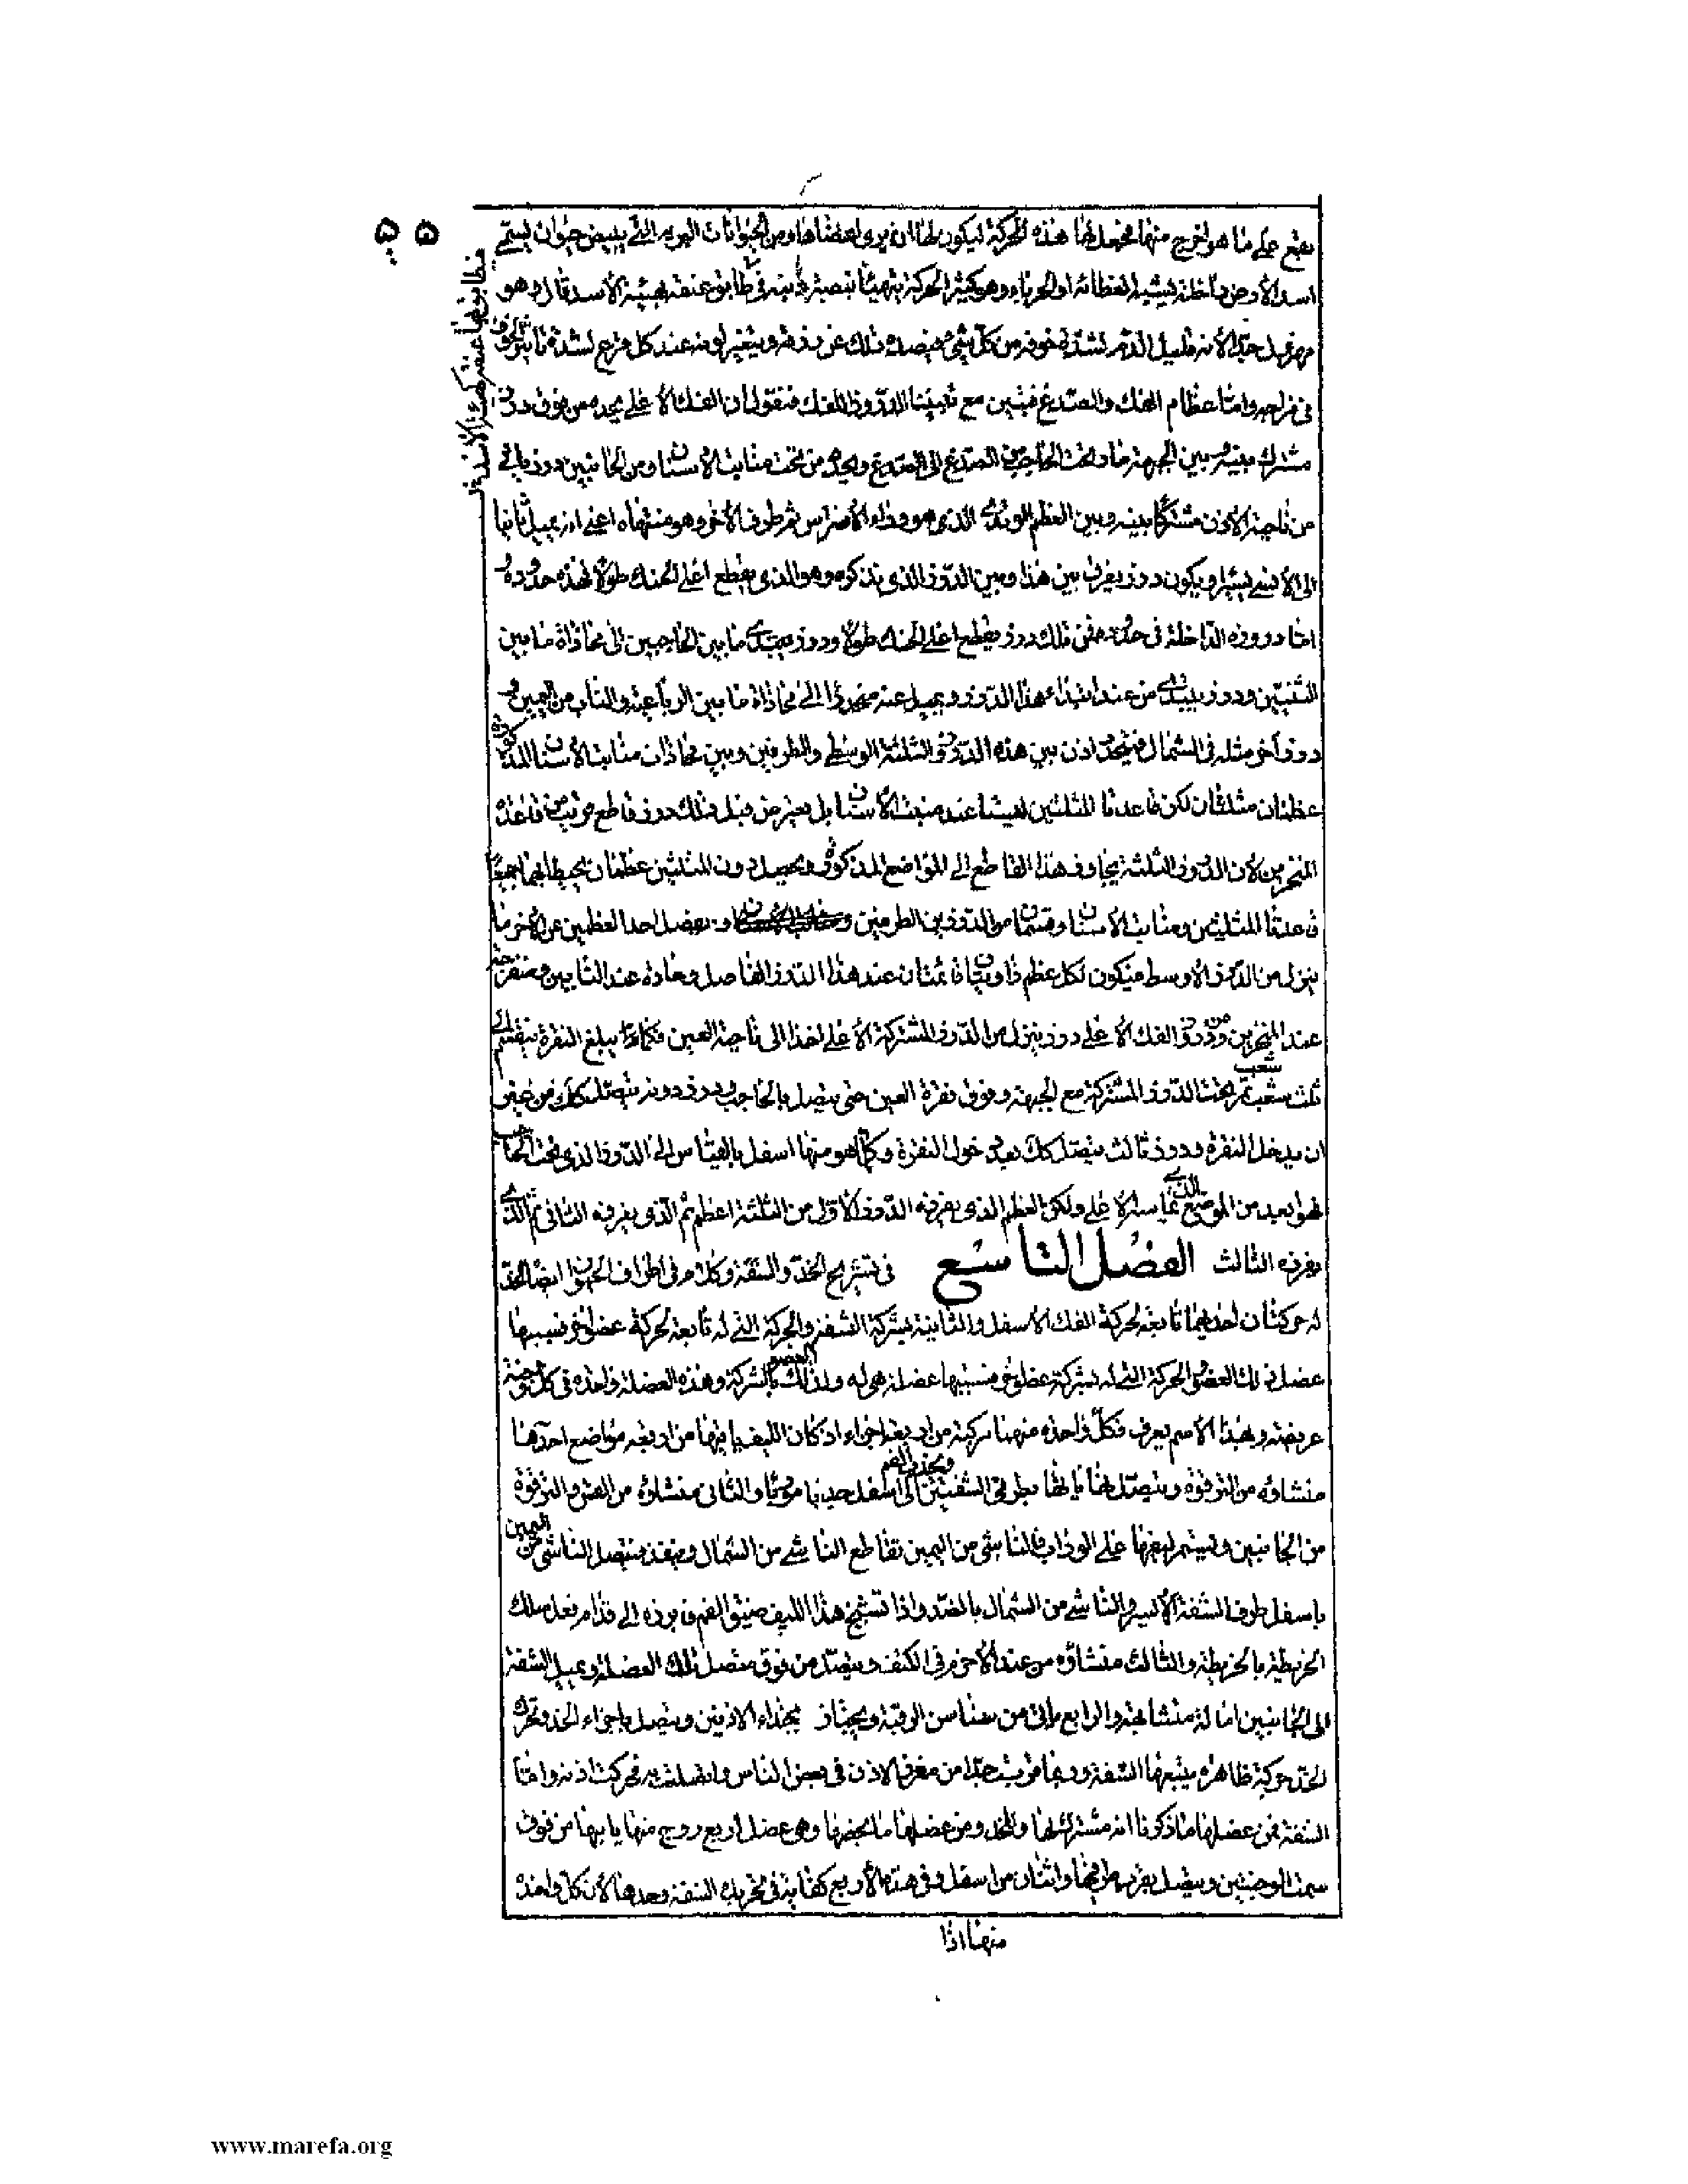 يقع على ما هو اخرج منها فجعل لها هذه الحركة ليكون لها ان يرى اعضاها ومن الحيوانات البرية التي يبيض حيوان يسمى
اسد الأرض داخله يشبه العظائة او الحرباء وهو كثير الحركة
جدا لأنه قليل الدم لشدة خوفه من كل شيء فيصده ذلك عن رزقه ويتغير لونه عند كل فزع لشدة تأثير الخوف
في مزاجه واما عظام الفك والصدغ فنبين مع تبييننا لدروز الفك فنقول ان الفك الأعلى يحده من فوق درز
مشترك بينه وبين الجبهة مار تحت الحاجب من الصدغ الى الصدغ ويحده من تحت منابت الأسنان ومن الجانبين درز يأتي
من ناحية الأذن مشتركا بينه وبين العظم الوتدي الذي هو وراء الأضراس ثم طرف الأخر وهو منتهاه اعني انه يميل ثانيا
الى الأنسي يسيرا ويكون درز يفرق بين هذا وبين الدرز الذي نذكره وهو الذي يقطع اعلى الحنك طولا فهذه حدوده و
اما دروزه الداخلة في حدوده فمن ذلك درز يقطع اعلى الحنك طولا ودرز يبتدي ما بين الحاجبين الى محاذاة ما بين
الثنيتين ودرز يبتدي من عند ابتداء هذا الدرز ويميل عنه منحدرا الى محاذاة ما بين الرباعية والناب من اليمين و
درز آخر مثله في الشمال فيتحدد اذن بين هذه الدروز الثلثة الوسطى والطرفين وبين محاذات منابت الأسنان المذكورة
عظمان مثلثان لكن قاعدتا المثلثين ليستا عند منبت الأسنان بل يعترض قبل ذلك درز قاطع قريب من قاعدة
المنخرين لأن الدروز الثلثة يجاوز هذا القاطع الى المواضع المذكورة ويحصل دون المثلثين عظمان يحيط بهما جميعا
قاعدتا المثلثين ومنابت الأسنان وقسمان من الدرزين الطرفين ويفصل احد العظمين عن الأخر ما
ينزل من الدرز الأوسط فيكون لكل عظم زاويتان قائمتان عند هذا الدرز الفاصل وحادة عند النابين ومنفرجة
عند المنخرين ومن دروز الفك الأعلى درز ينزل من الدرز المشترك الأعلى اخذا الى ناحية العين فكما يبلغ النقرة ينقسم الى
ثلث شعب شعب تمر تحت الدرز المشترك مع الجبهة وفوق نقرة العين حتى يتصل بالحاجب ودرز دونه يتصل كك من غير
ان يدخل النقرة ودرز ثالث يتصل كك بعد دخول النقرة وكلما هو منها اسفل بالقياس الى الدرز الذي تحت الحاجب
فهو ابعد من الموضع الذي يماسه الأعلى ولكن العظم الذي يفرزه الدرز الأول من الثلثة اعظم ثم الذي يفرزه الثاني ثم الذي
يفرزه الثالث الفصل التاسع في تشريح الخد والشفة وكلام في اطراف الحيوان ايضا الخد
له حركتان احديهما تابعة لحركة الفك الأسفل والثانية بشركة الشفة والحركة التي له تابعة لحركة عضو آخر فسببها
عضل ذلك العضو والحركة التي له بشركة عضو آخر فسببها عضلة هي له ولذلك العضو بالشركة وهذه العضلة واحدة في كل وجنة
عريضة وبهذا الأسم يعرف وكل واحدة منهما مركبة من اربعة اجزاء اذ كان الليف يأتيها من اربعة مواضع احدها
منشاؤه من الترقوة ويتصل نهاياتها بطرفي الشفتين الى اسفل ويجذب الفم جذبا موربا والثاني منشاؤه من القس والترقوة
من الجانبين ويستمر ليفها على الوراب فالناشي من اليمين تقاطع الناشي من الشمال وينفذ فيتصل الناشي من اليمين
باسفل طرف الشفة الأيسر والناشي من الشمال بالضد واذا تشنج هذا الليف ضيق الفم فابرزه الى قدام فعل سلك
الخريطة بالخريطة والثالث منشاؤه من عند الأخرم في الكتف ويتصل من فوق متصل تلك العضلة ويميل الشفة
الى الجانبين امالة متشابهة والرابع يأتي من سناسن الرقبة ويجتاز بحذاء الاذنين ويتصل باجزاء الخد ويحرك
الخد حركة ظاهرة يتبعها الشفة وربما قربت جدا من مغرز الاذن في بعض الناس واتصلت به فحركت اذنه واما
الشفة فمن عضلها ما ذكرنا انه مشترك لها والخد ومن عضلها ما يخصها وهي عضل اربع زوج منها يأتيها من فوق
سمت الوجنتين ويتصل بقرب طرفيها واثنان من اسفل وفي هذه الأربع كفاية في تحريك الشفة وحدها لأن كل واحدة
منها اذا
www.marefa.org